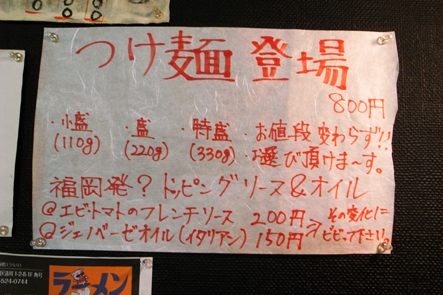 つけ麺 登場
800円
・小盛 ・盛 ・特盛 ・お値段変わらず!!
(110g) (220g) (330g) ・選び頂けま〜す。
福岡発？トッピングソース&オイル
@エビトマトのフレンチソース 200円 その変化に
@ジェノベーゼオイル(イタリアン) 150円 ビビって下さい
ラーメン
624-0744